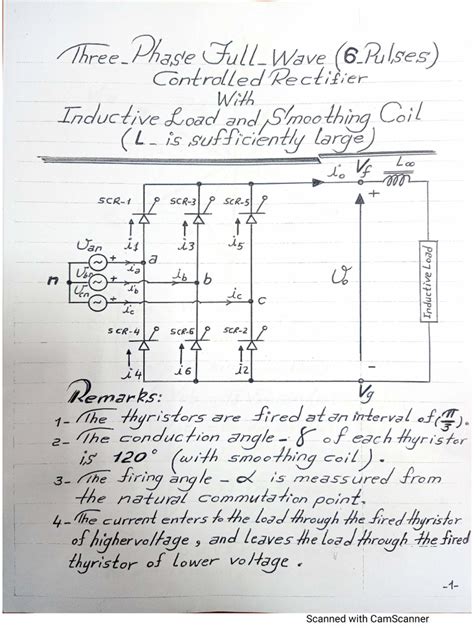 Three-Phase Full-Wave (6-Pulses)
Controlled Rectifier
With
Inductive Load and Smoothing Coil
(L- is sufficiently large)
io
Vf
L∞
+
SCR-1
SCR-3
SCR-5
i1
i3
i5
Uan
+
ia
a
n
Ubn
+
ib
b
Ucn
+
ic
c
Uo
Inductive Load
SCR-4
SCR-6
SCR-2
i4
i6
i2
-
Vg
Remarks:
1- The thyristors are fired at an interval of (π/3).
2- The conduction angle - γ of each thyristor
is 120° (with smoothing coil).
3- The firing angle - α is meassured from
the natural commutation point.
4- The current enters to the load through the fired thyristor
of higher voltage, and leaves the load through the fired
thyristor of lower voltage.
-1-
Scanned with CamScanner